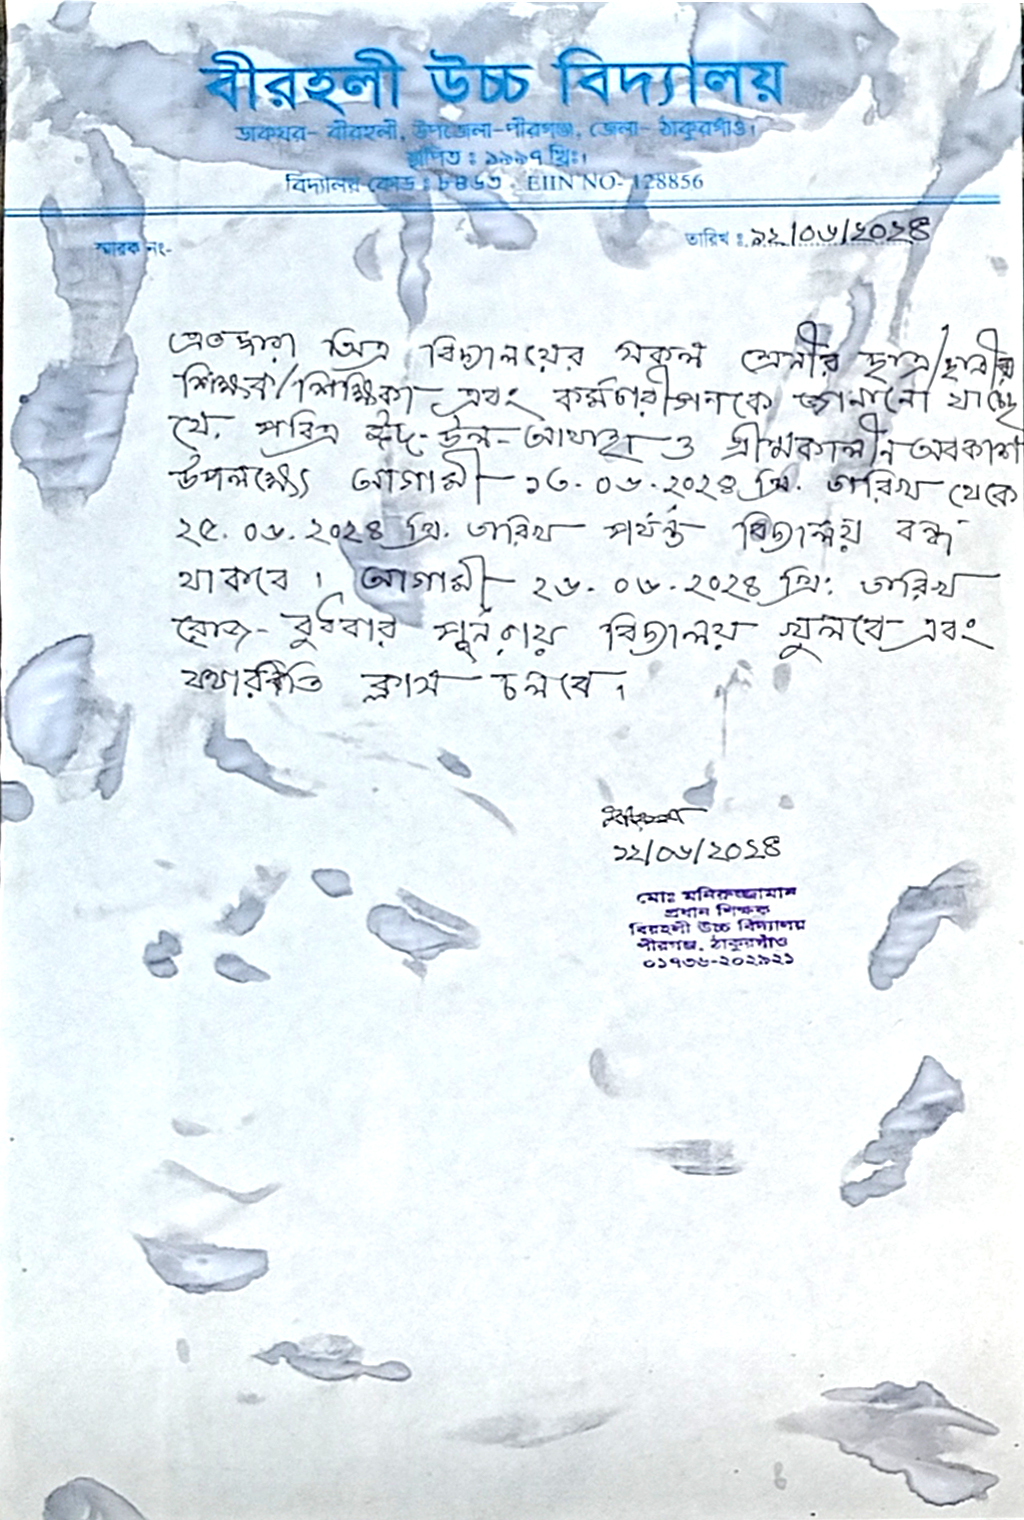 বীরহলী উচ্চ বিদ্যালয়
ডাকঘর- বীরহলী, উপজেলা-পীরগঞ্জ, জেলা- ঠাকুরগাঁও।
স্থাপিত : ১৯৯৭ খ্রিঃ।
বিদ্যালয় কোড : ৮৪৬৩ . EIIN NO- 128856
স্মারক নং-
তারিখ : ১২/০৬/২০২৪
এতদ্বারা অত্র বিদ্যালয়ের সকল শ্রেনীর ছাত্র/ছাত্রীর
শিক্ষক/শিক্ষিকা এবং কর্মচারীগনকে জানানো যাচ্ছে
যে, পবিত্র ঈদ-উল-আযাহা ও গ্রীষ্মকালীন অবকাশ
উপলক্ষ্যে আগামী ১৩.০৬.২০২৪ খ্রি. তারিখ থেকে
২৫.০৬.২০২৪ খ্রি. তারিখ পর্যন্ত বিদ্যালয় বন্ধ
থাকবে। আগামী ২৬.০৬.২০২৪ খ্রি: তারিখ
রোজ- বুধবার পূনরায় বিদ্যালয় খুলবে এবং
যথারীতি ক্লাস চলবে।
১২/০৬/২০২৪
মোঃ মনিরুজ্জামান
প্রধান শিক্ষক
বিরহলী উচ্চ বিদ্যালয়
পীরগঞ্জ, ঠাকুরগাঁও
০১৭৩৬-২০২৯২১